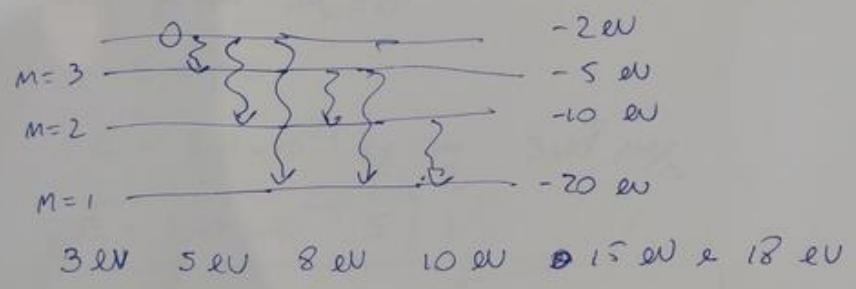 -2 eV
n=3 -5 eV
n=2 -10 eV
n=1 -20 eV
3 eV 5 eV 8 eV 10 eV 15 eV e 18 eV